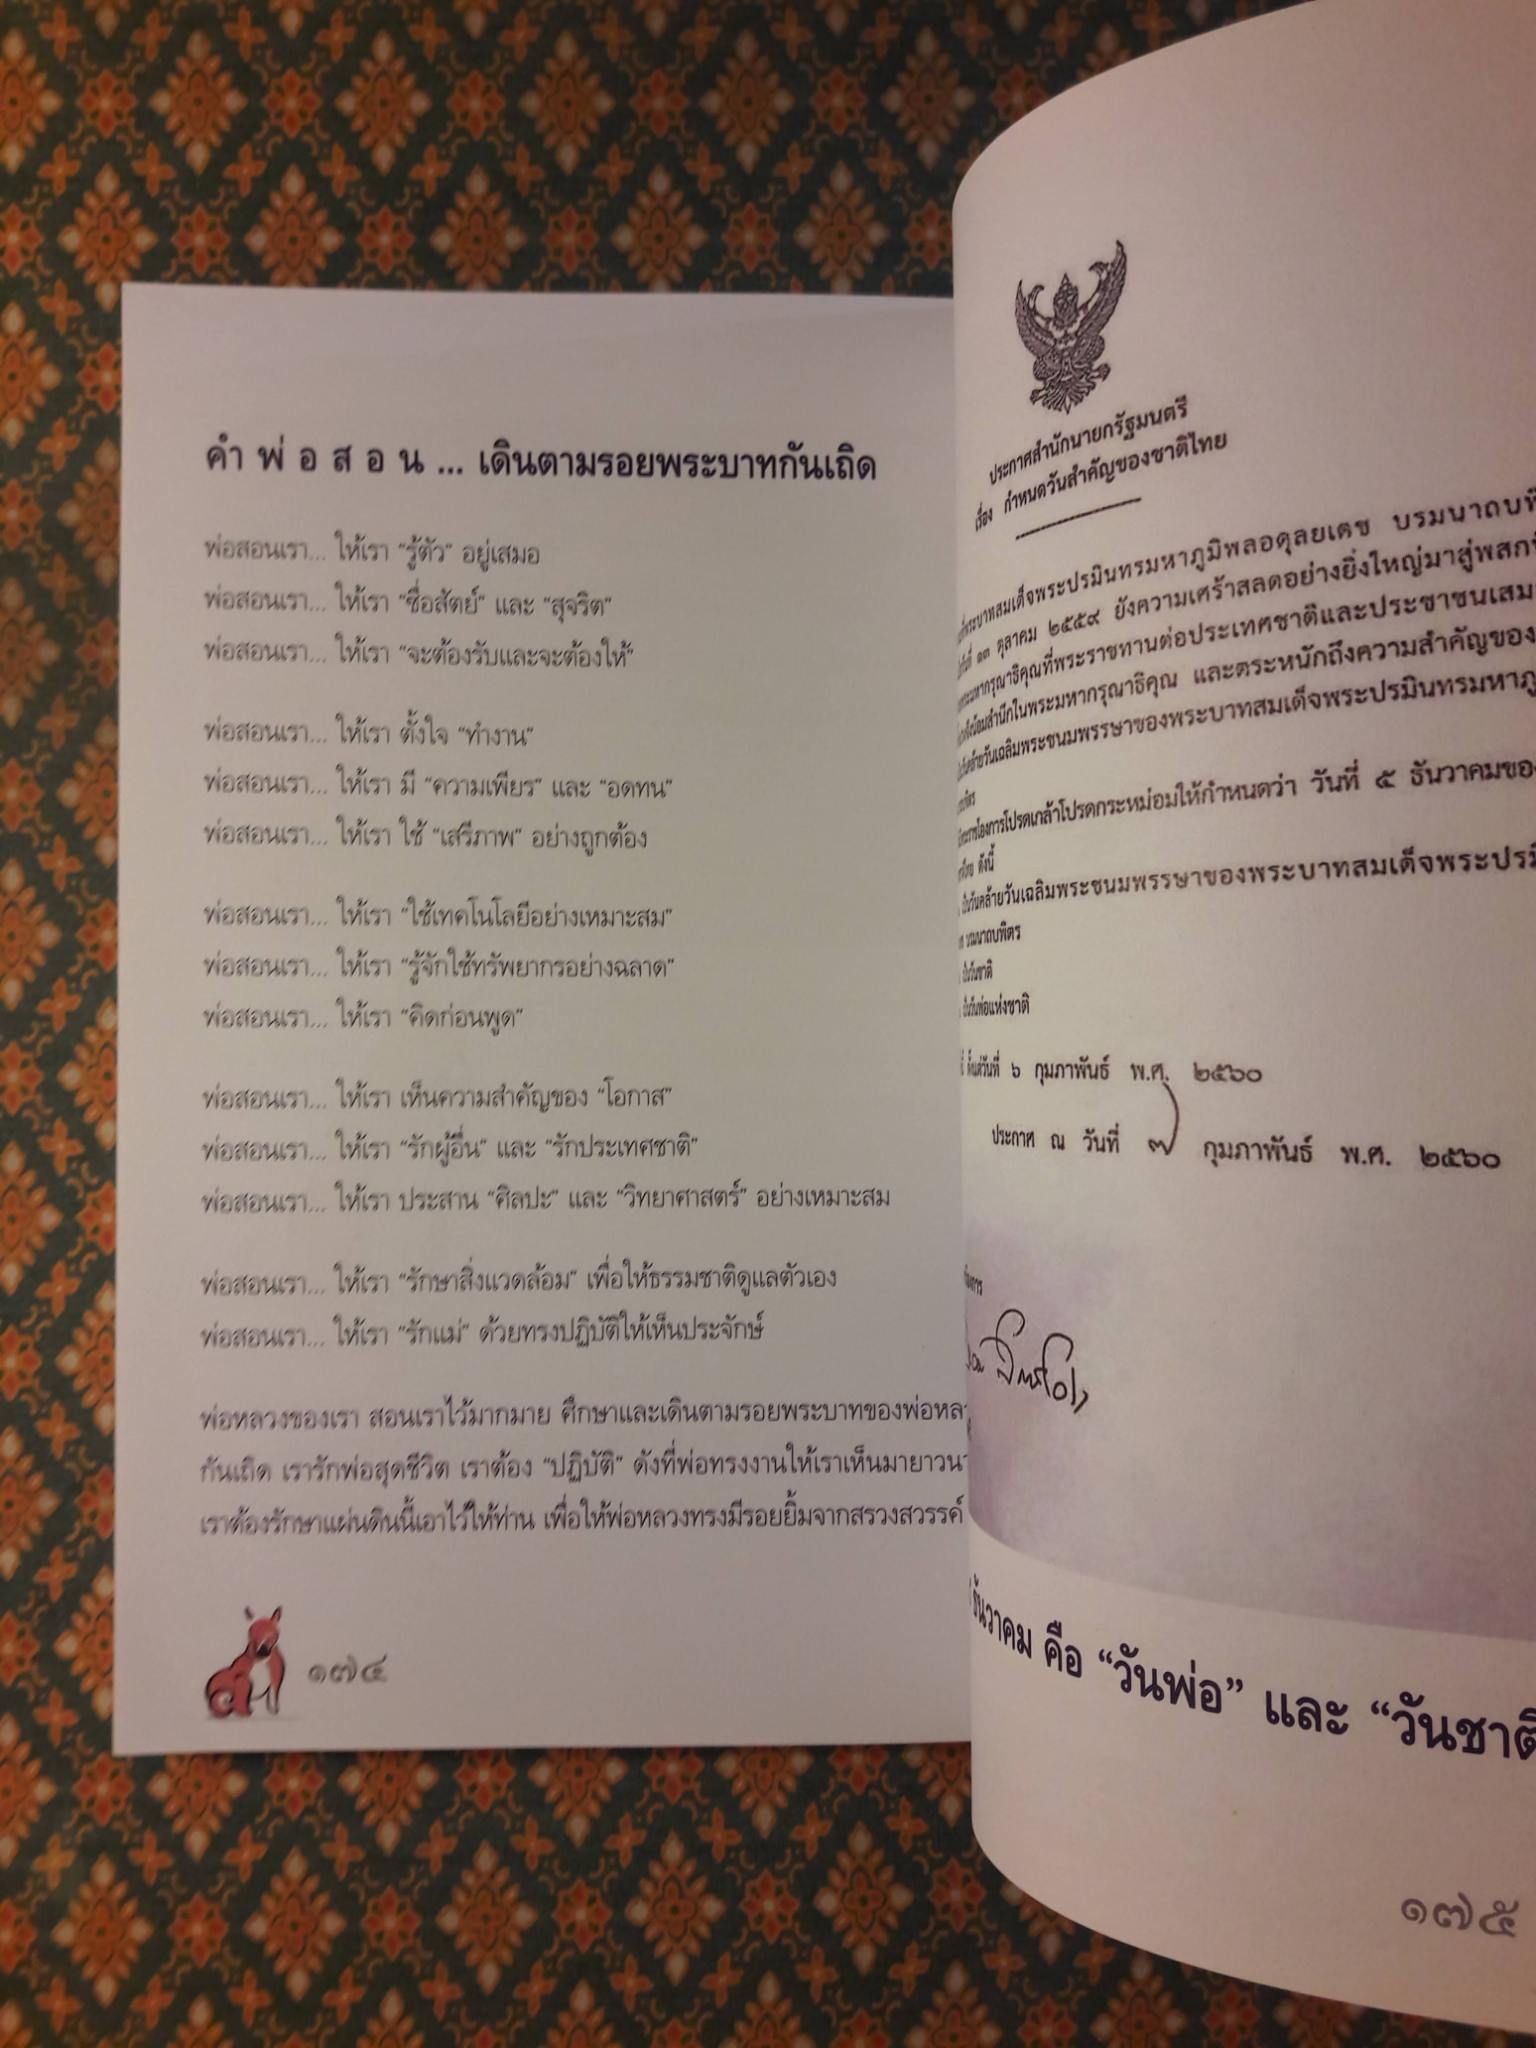 คำ พ่ อ ส อ น ... เดินตามรอยพระบาทกันเถิด
พ่อสอนเรา... ให้เรา "รู้ตัว" อยู่เสมอ
พ่อสอนเรา... ให้เรา "ซื่อสัตย์" และ "สุจริต"
พ่อสอนเรา... ให้เรา "จะต้องรับและจะต้องให้"
พ่อสอนเรา... ให้เรา ตั้งใจ "ทำงาน"
พ่อสอนเรา... ให้เรา มี "ความเพียร" และ "อดทน"
พ่อสอนเรา... ให้เรา ใช้ "เสรีภาพ" อย่างถูกต้อง
พ่อสอนเรา... ให้เรา "ใช้เทคโนโลยีอย่างเหมาะสม"
พ่อสอนเรา... ให้เรา "รู้จักใช้ทรัพยากรอย่างฉลาด"
พ่อสอนเรา... ให้เรา "คิดก่อนพูด"
พ่อสอนเรา... ให้เรา เห็นความสำคัญของ "โอกาส"
พ่อสอนเรา... ให้เรา "รักผู้อื่น" และ "รักประเทศชาติ"
พ่อสอนเรา... ให้เรา ประสาน "ศิลปะ" และ "วิทยาศาสตร์" อย่างเหมาะสม
พ่อสอนเรา... ให้เรา "รักษาสิ่งแวดล้อม" เพื่อให้ธรรมชาติดูแลตัวเอง
พ่อสอนเรา... ให้เรา "รักแม่" ด้วยทรงปฏิบัติให้เห็นประจักษ์
พ่อหลวงของเรา สอนเราไว้มากมาย ศึกษาและเดินตามรอยพระบาทของพ่อหล
กันเถิด เรารักพ่อสุดชีวิต เราต้อง "ปฏิบัติ" ดังที่พ่อทรงงานให้เราเห็นมายาวนา
เราต้องรักษาแผ่นดินนี้เอาไว้ให้ท่าน เพื่อให้พ่อหลวงทรงมีรอยยิ้มจากสรวงสวรรค์
๑๗๔
ประกาศสำนักนายกรัฐมนตรี
เรื่อง กำหนดวันสำคัญของชาติไทย
ที่พระบาทสมเด็จพระปรมินทรมหาภูมิพลอดุลยเดช บรมนาถบพิ
วันที่ ๑๓ ตุลาคม ๒๕๕๙ ยังความเศร้าสลดอย่างยิ่งใหญ่มาสู่พสกนิ
พระมหากรุณาธิคุณที่พระราชทานต่อประเทศชาติและประชาชนเสม
น้อมสำนึกในพระมหากรุณาธิคุณ และตระหนักถึงความสำคัญของ
คล้ายวันเฉลิมพระชนมพรรษาของพระบาทสมเด็จพระปรมินทรมหาภู
โปรดเกล้าโปรดกระหม่อมให้กำหนดว่า วันที่ ๕ ธันวาคมของ
ดังนี้
เป็นวันคล้ายวันเฉลิมพระชนมพรรษาของพระบาทสมเด็จพระปรมิ
บรมนาถบพิตร
เป็นวันชาติ
เป็นวันพ่อแห่งชาติ
ตั้งแต่วันที่ ๖ กุมภาพันธ์ พ.ศ. ๒๕๖๐
ประกาศ ณ วันที่ ๗ กุมภาพันธ์ พ.ศ. ๒๕๖๐
ธันวาคม คือ "วันพ่อ" และ "วันชาติ
๑๗๕